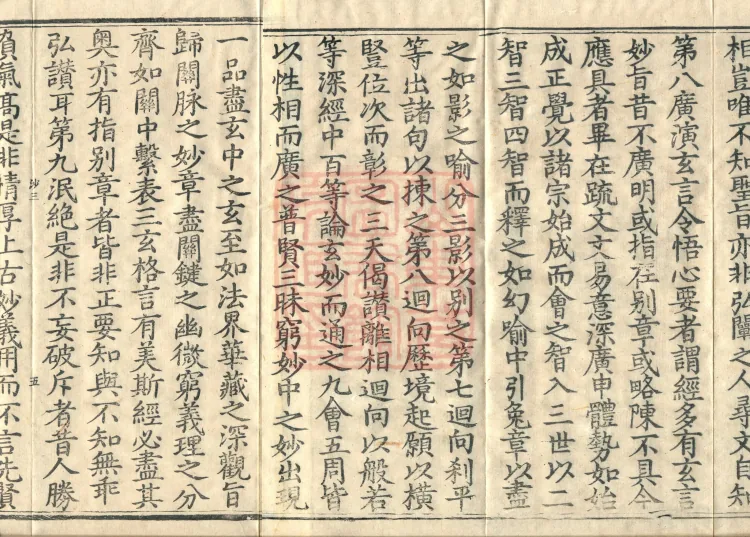 相豈唯不知聖旨亦非弘闡之人尋文自知
第八廣演玄言令悟心要者謂經多有玄言
妙旨昔不廣明或指在别章或略陳不具今
應具者畢在疏文文易意深廣申體勢如始
成正覺以諸宗始成而會之智入三世以二
智三智四智而釋之如幻喻中引兔章以盡
之如影之喻分三影以别之第七迴向刹平
等出諸句以揀之第八迴向歷境起願以橫
豎位次而彰之三天偈讃離相迴向以般若
等深經中百等論玄妙而通之九會五周皆
以性相而廣之普賢三昧窮妙中之妙出現
一品盡玄中之玄至如法界華藏之深觀旨
歸關脉之妙章盡關鍵之幽微窮義理之分
齊如關中繫表三玄格言有美斯經必盡其
奥亦有指别章者皆非正要知與不知無乖
弘讃耳第九泯絶是非不妄破斥者昔人勝
鈔三
五
負氣髙是非情厚上古妙義用而不言先賢